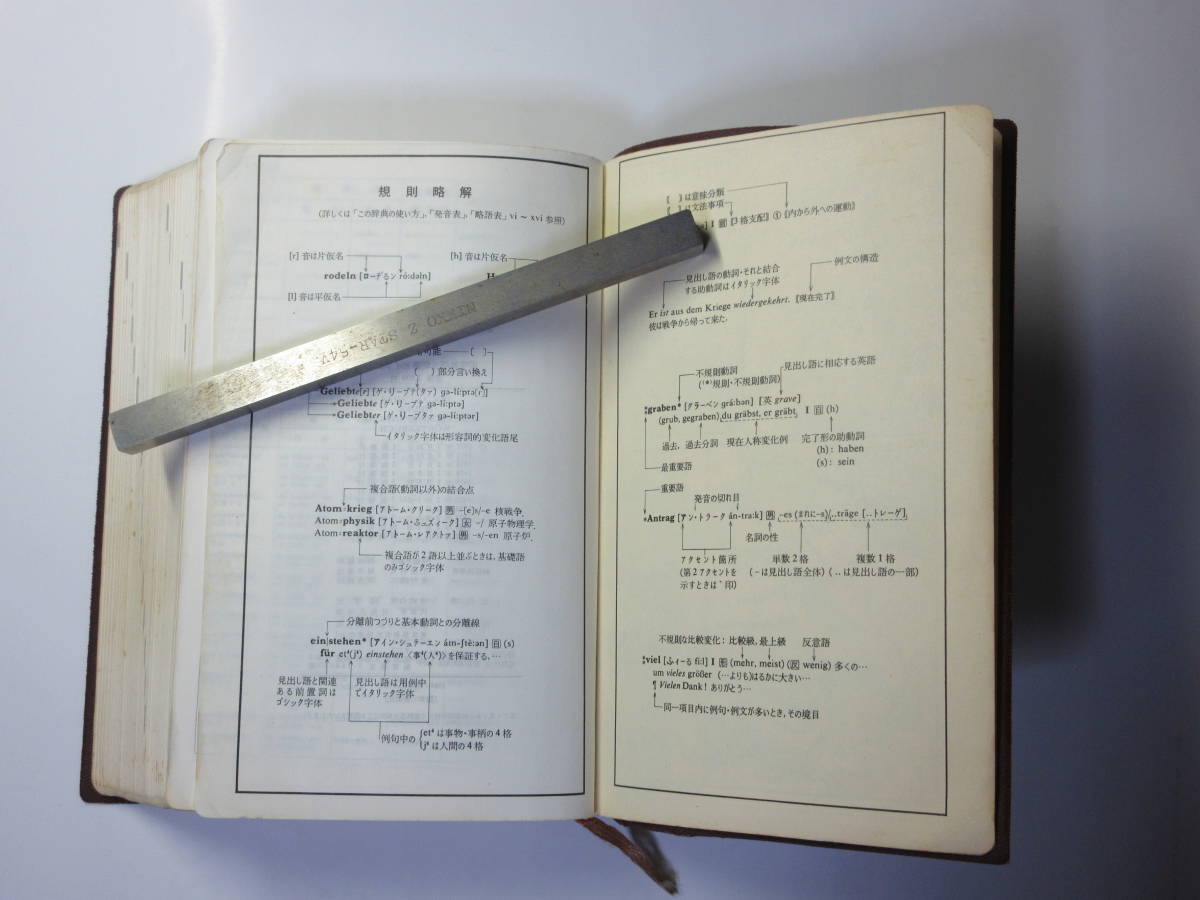 規則略解
(詳しくは「この辞典の使い方」,「発音表」,「略語表」vi ~ xvi 参照)
[r] 音は片仮名
[h] 音は片仮名
rodeln [ローデるン ró:dəln]
H
[l] 音は平仮名
NIKKO Z STAR-54V
可能 ( )
( ) 部分言い換え
Geliebte[r] [ゲ・リープテ(タァ) gə-lí:ptə(r)]
Geliebte [ゲ・リープテ gə-lí:ptə]
Geliebter [ゲ・リープタァ gə-lí:ptər]
イタリック字体は形容詞的変化語尾
複合語(動詞以外)の結合点
Atom=krieg [アトーム・クリーク] 男 -[e]s/-e 核戦争.
Atom=physik [アトーム・ふュズィーク] 女 -/ 原子物理学.
Atom=reaktor [アトーム・レアクトァ] 男 -s/-en 原子炉.
複合語が2語以上並ぶときは, 基礎語
のみゴシック字体
分離前つづりと基本動詞との分離線
ein|stehen* [アイン・シュテーエン áɪn-ʃtè:ən] 自 (s)
für et⁴(j⁴) einstehen 〈事⁴(人⁴)〉を保証する, …
見出し語と関連
ある前置詞は
ゴシック字体
見出し語は用例中
でイタリック字体
例句中の
et⁴ は事物・事柄の4格
j⁴ は人間の4格
〘 〙は意味分類
〚 〛は文法事項
] I 前 〚3格支配〛 ① 〘内から外への運動〙
見出し語の動詞・それと結合
する助動詞はイタリック字体
例文の構造
Er ist aus dem Kriege wiedergekehrt. 〚現在完了〛
彼は戦争から帰って来た.
不規則動詞
((*)規則・不規則動詞)
見出し語に相応する英語
graben* [グラーベン grá:bən] [英 grave]
(grub, gegraben) du gräbst, er gräbt I 自 (h)
過去, 過去分詞 現在人称変化例 完了形の助動詞
(h): haben
(s): sein
最重要語
重要語
発音の切れ目
*Antrag [アン・トラーク án-tra:k] 男 -es (まれに-s)/..träge [..トレーゲ]
名詞の性
アクセント箇所
(第2アクセントを
示すときは ` 印)
単数2格
(-は見出し語全体)
複数1格
(..は見出し語の一部)
不規則な比較変化: 比較級, 最上級 反意語
viel [ふィーる fi:l] I 形 (mehr, meist) (反 wenig) 多くの…
um vieles größer (…よりも)はるかに大きい…
¶ Vielen Dank! ありがとう…
同一項目内に例句・例文が多いとき, その境目